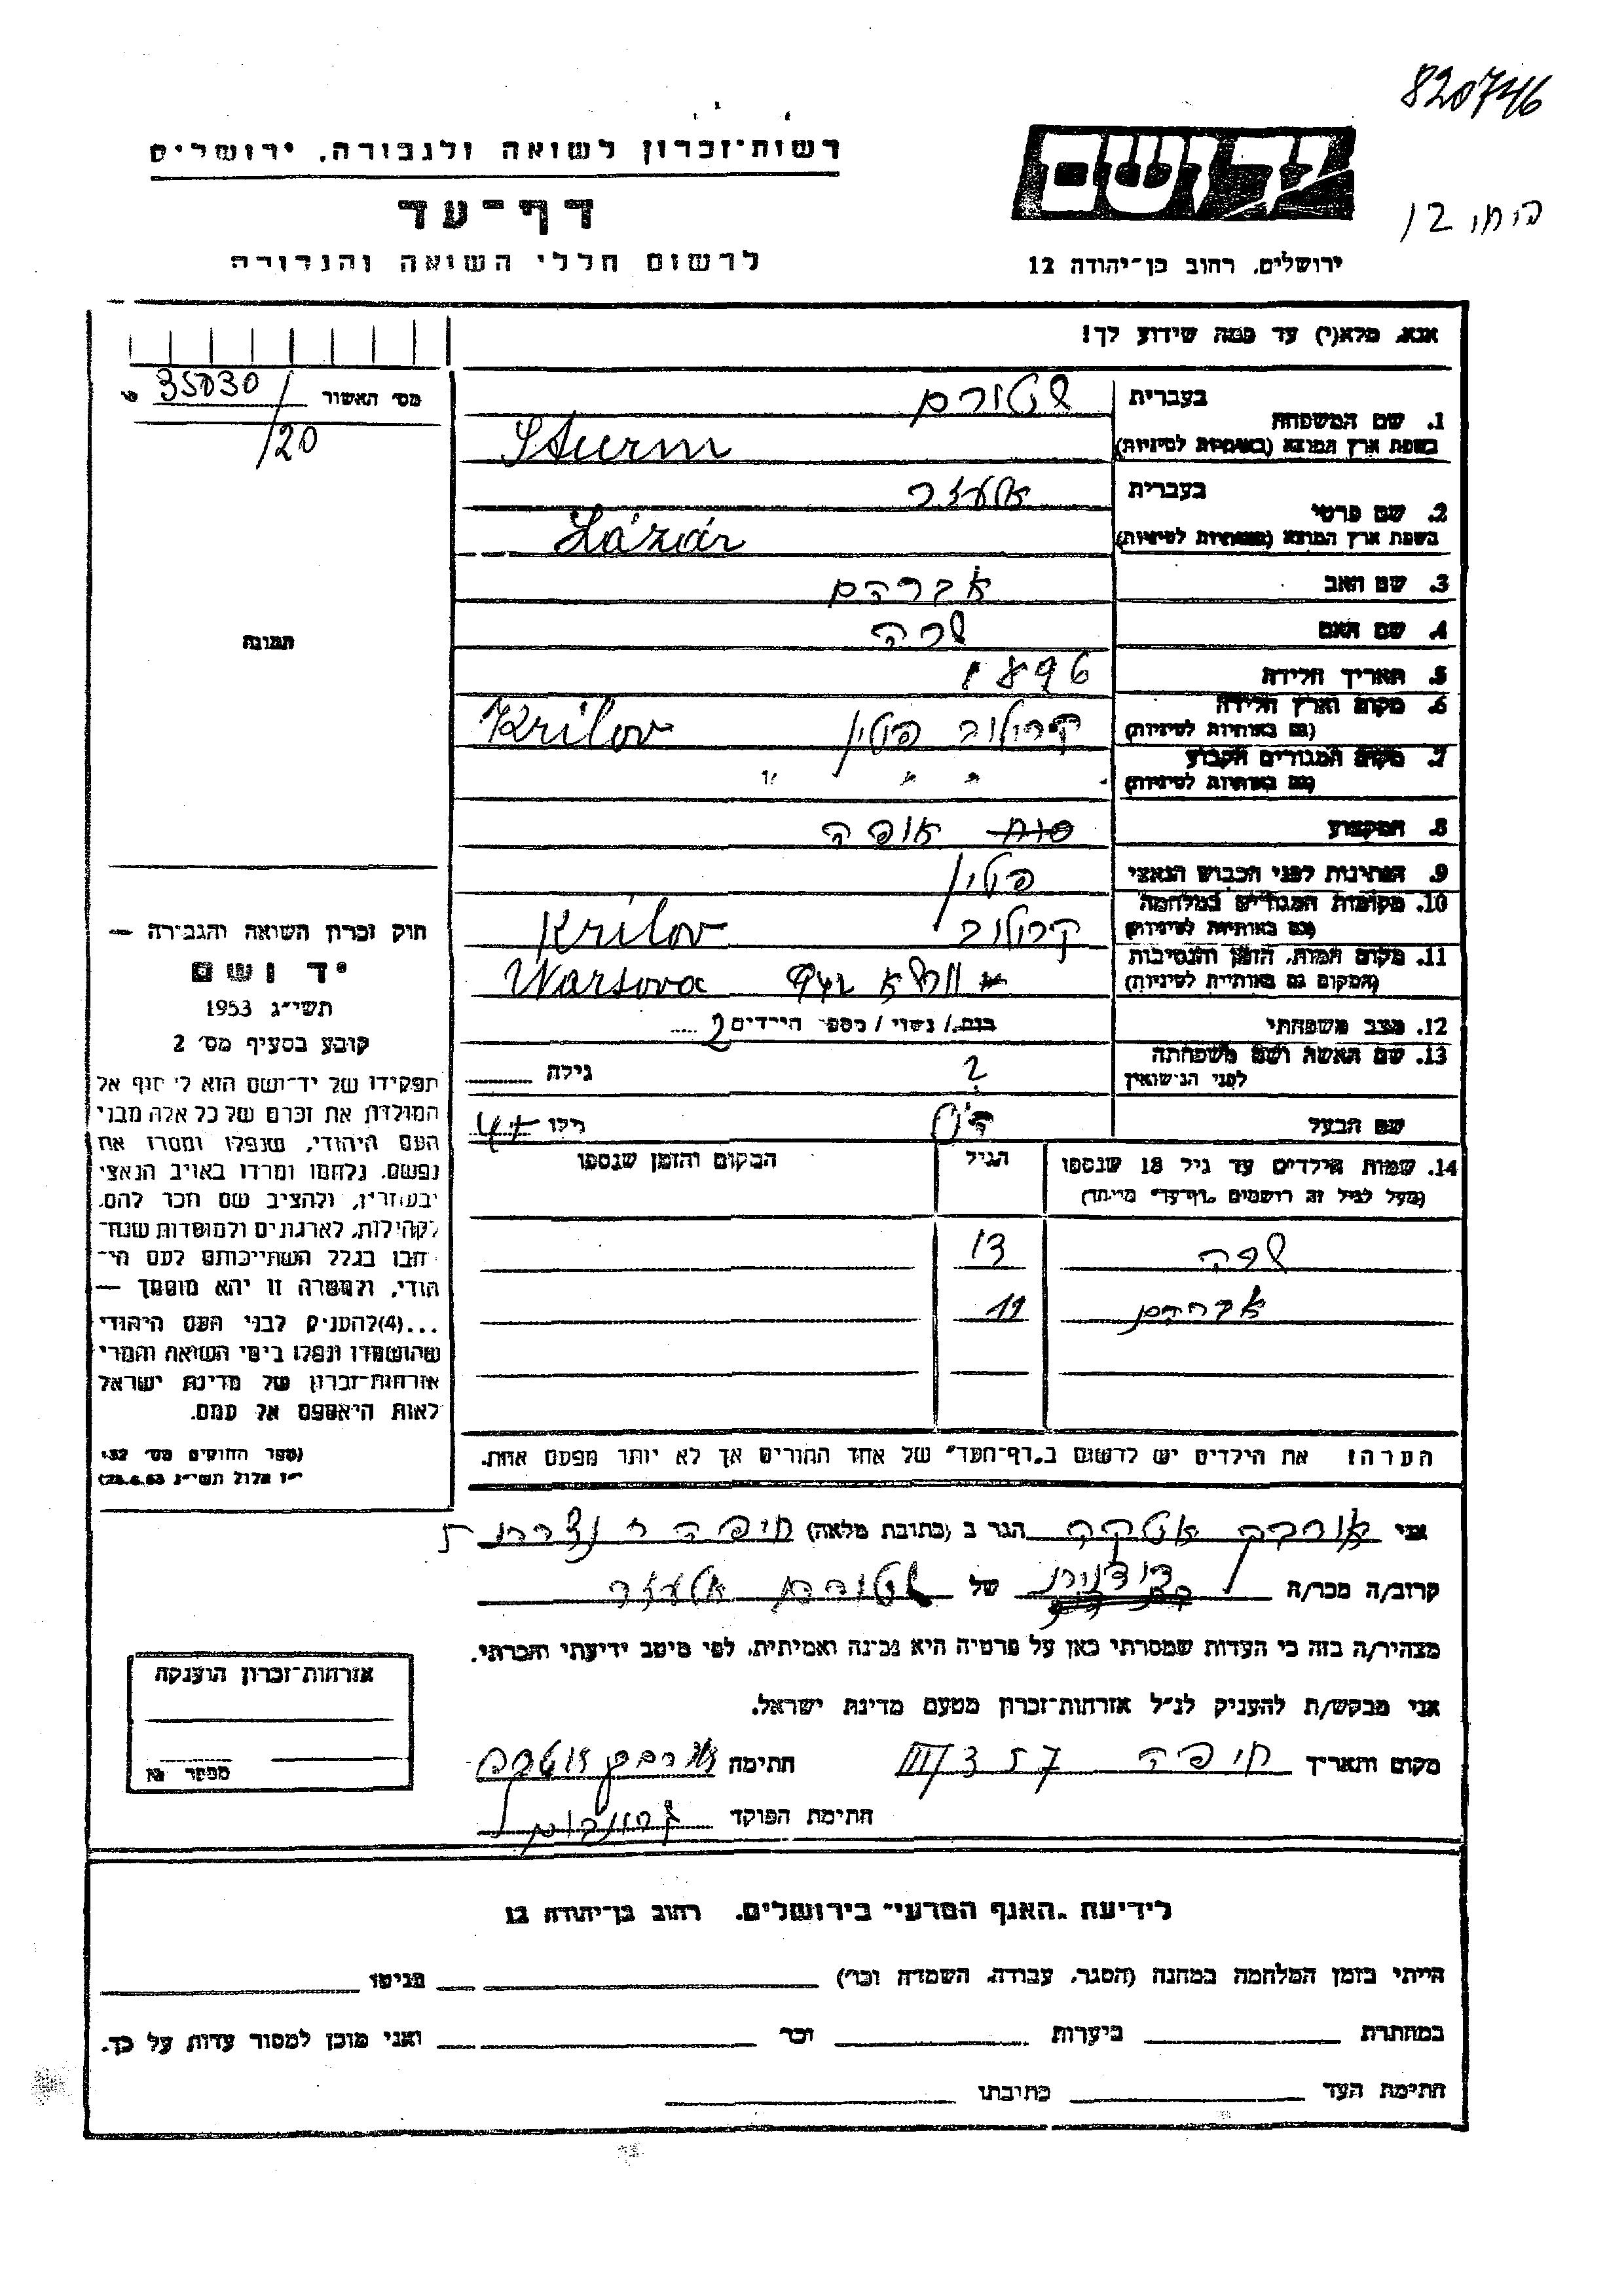 820746
רשות־זכרון לשואה ולגבורה, ירושלים
יד ושם
דף־עד
12
לרשום חללי השואה והגבורה
ירושלים, רחוב בן־יהודה 12
אנא, מלא(י) עד כמה שידוע לך!
מס׳ האשור 35030/
/20
בעברית שטורם
1. שם המשפחה
בשפת ארץ המוצא (באותיות לטיניות) Sturm
בעברית אלעזר
2. שם פרטי
בשפת ארץ המוצא (באותיות לטיניות) Lázár
3. שם האב אברהם
4. שם האם שרה
תמונה
5. תאריך הלידה 1896
6. מקום וארץ הלידה
(גם באותיות לטיניות) קרילוב פולין Krilov
7. מקום המגורים הקבוע
(גם באותיות לטיניות) " " " "
8. המקצוע אופה
9. הנתינות לפני הכבוש הנאצי פולין
10. מקומות המגורים במלחמה
(גם באותיות לטיניות) קרילוב Krilov
11. מקום המות, הזמן והנסיבות
(המקום גם באותיות לטיניות) Warsova
12. מצב משפחתי רווק / נשוי / מספר הילדים 2
13. שם האשה ושם משפחתה
לפני הנישואין ? גילה
שם הבעל גילו 47
14. שמות הילדים עד גיל 18 שנספו
(מעל לגיל זה רושמים „דף־עד״ מיוחד)
הגיל
המקום והזמן שנספו
שרה 13
אברהם 11
הערה: את הילדים יש לרשום ב„דף־העד״ של אחד ההורים אך לא יותר מפעם אחת.
חוק זכרון השואה והגבורה —
יד ושם
תשי״ג 1953
קובע בסעיף מס׳ 2
תפקידו של יד־ושם הוא לאסוף אל
המולדת את זכרם של כל אלה מבני
העם היהודי, שנפלו ומסרו את
נפשם, נלחמו ומרדו באויב הנאצי
ובעוזריו, ולהציב שם וזכר להם,
לקהילות, לארגונים ולמוסדות שנח־
רבו בגלל השתייכותם לעם הי־
הודי, ולמטרה זו יהא מוסמך —
...(4)להעניק לבני העם היהודי
שהושמדו ונפלו בימי השואה והמרי
אזרחות־זכרון של מדינת ישראל
לאות היאספם אל עמם.
(ספר החוקים מס׳ 132
י״ז אלול תשי״ג 28.8.53)
אני הגר ב (כתובת מלאה) חיפה
קרוב/ה מכר/ה של שטורם אלעזר
מצהיר/ה בזה כי העדות שמסרתי כאן על פרטיה היא נכונה ואמיתית, לפי מיטב ידיעתי והכרתי.
אני מבקש/ת להעניק לנ״ל אזרחות־זכרון מטעם מדינת ישראל.
מקום ותאריך חיפה חתימה
חתימת הפוקד
אזרחות־זכרון הוענקה
מספר
לידיעת „האגף המדעי״ בירושלים, רחוב בן־יהודה 12
הייתי בזמן המלחמה במחנה (הסגר, עבודה, השמדה וכו׳) בגיטו
במחתרת ביערות וכו׳ ואני מוכן למסור עדות על כך.
חתימת העד כתובתו